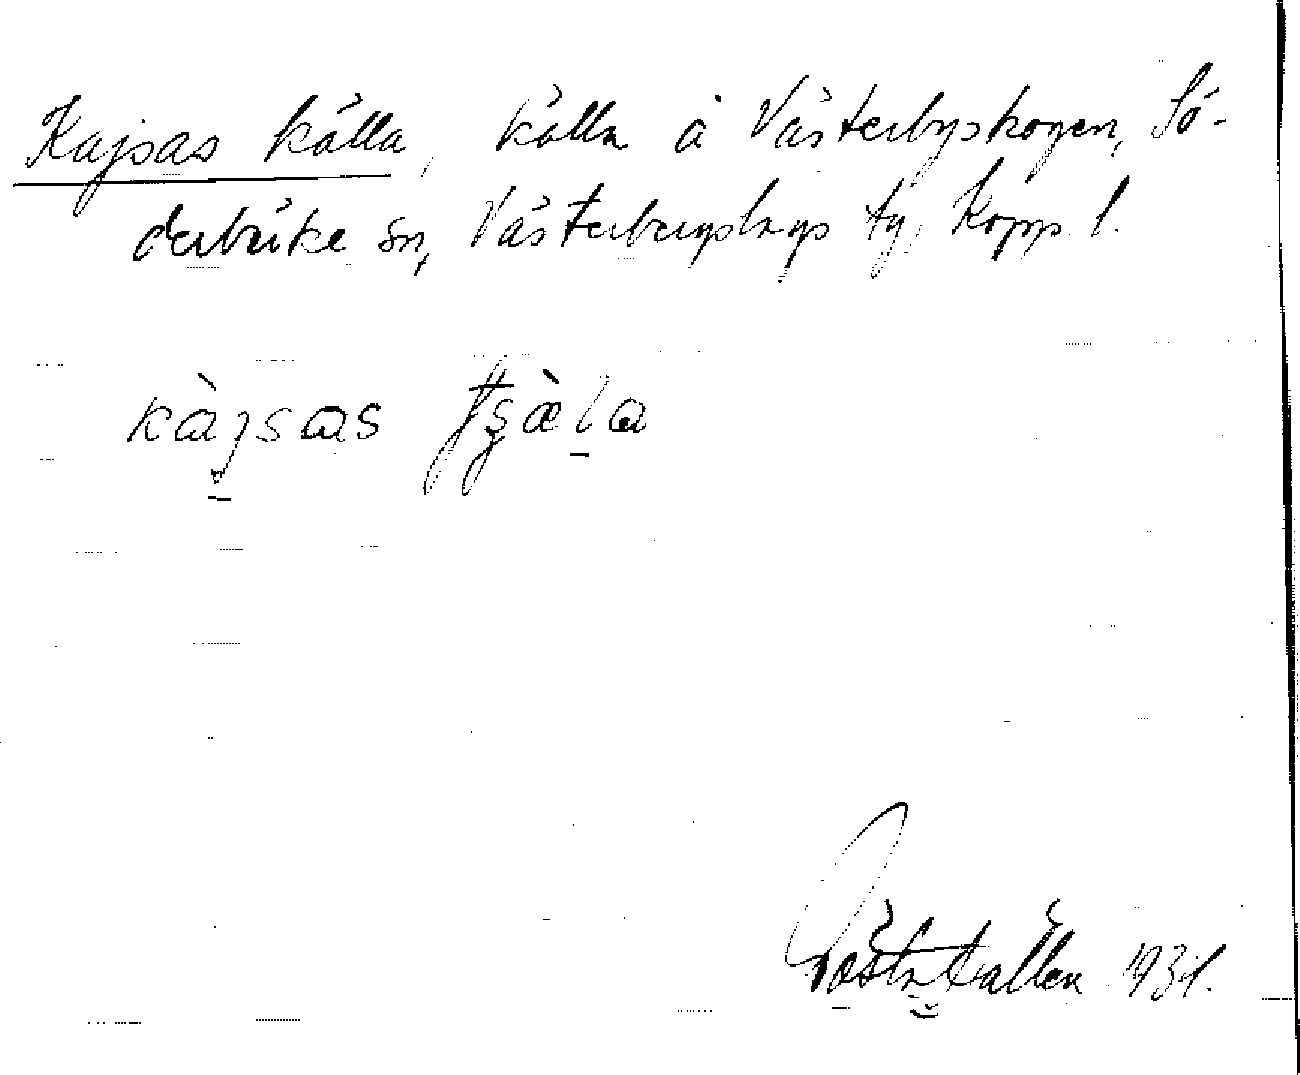 Kajsas källa, källa å Västerbyskogen, Sö-
derbärke sn, Västerbergslags tg, Kopp. l.
kàjsas
Gösta Kallen 1931.